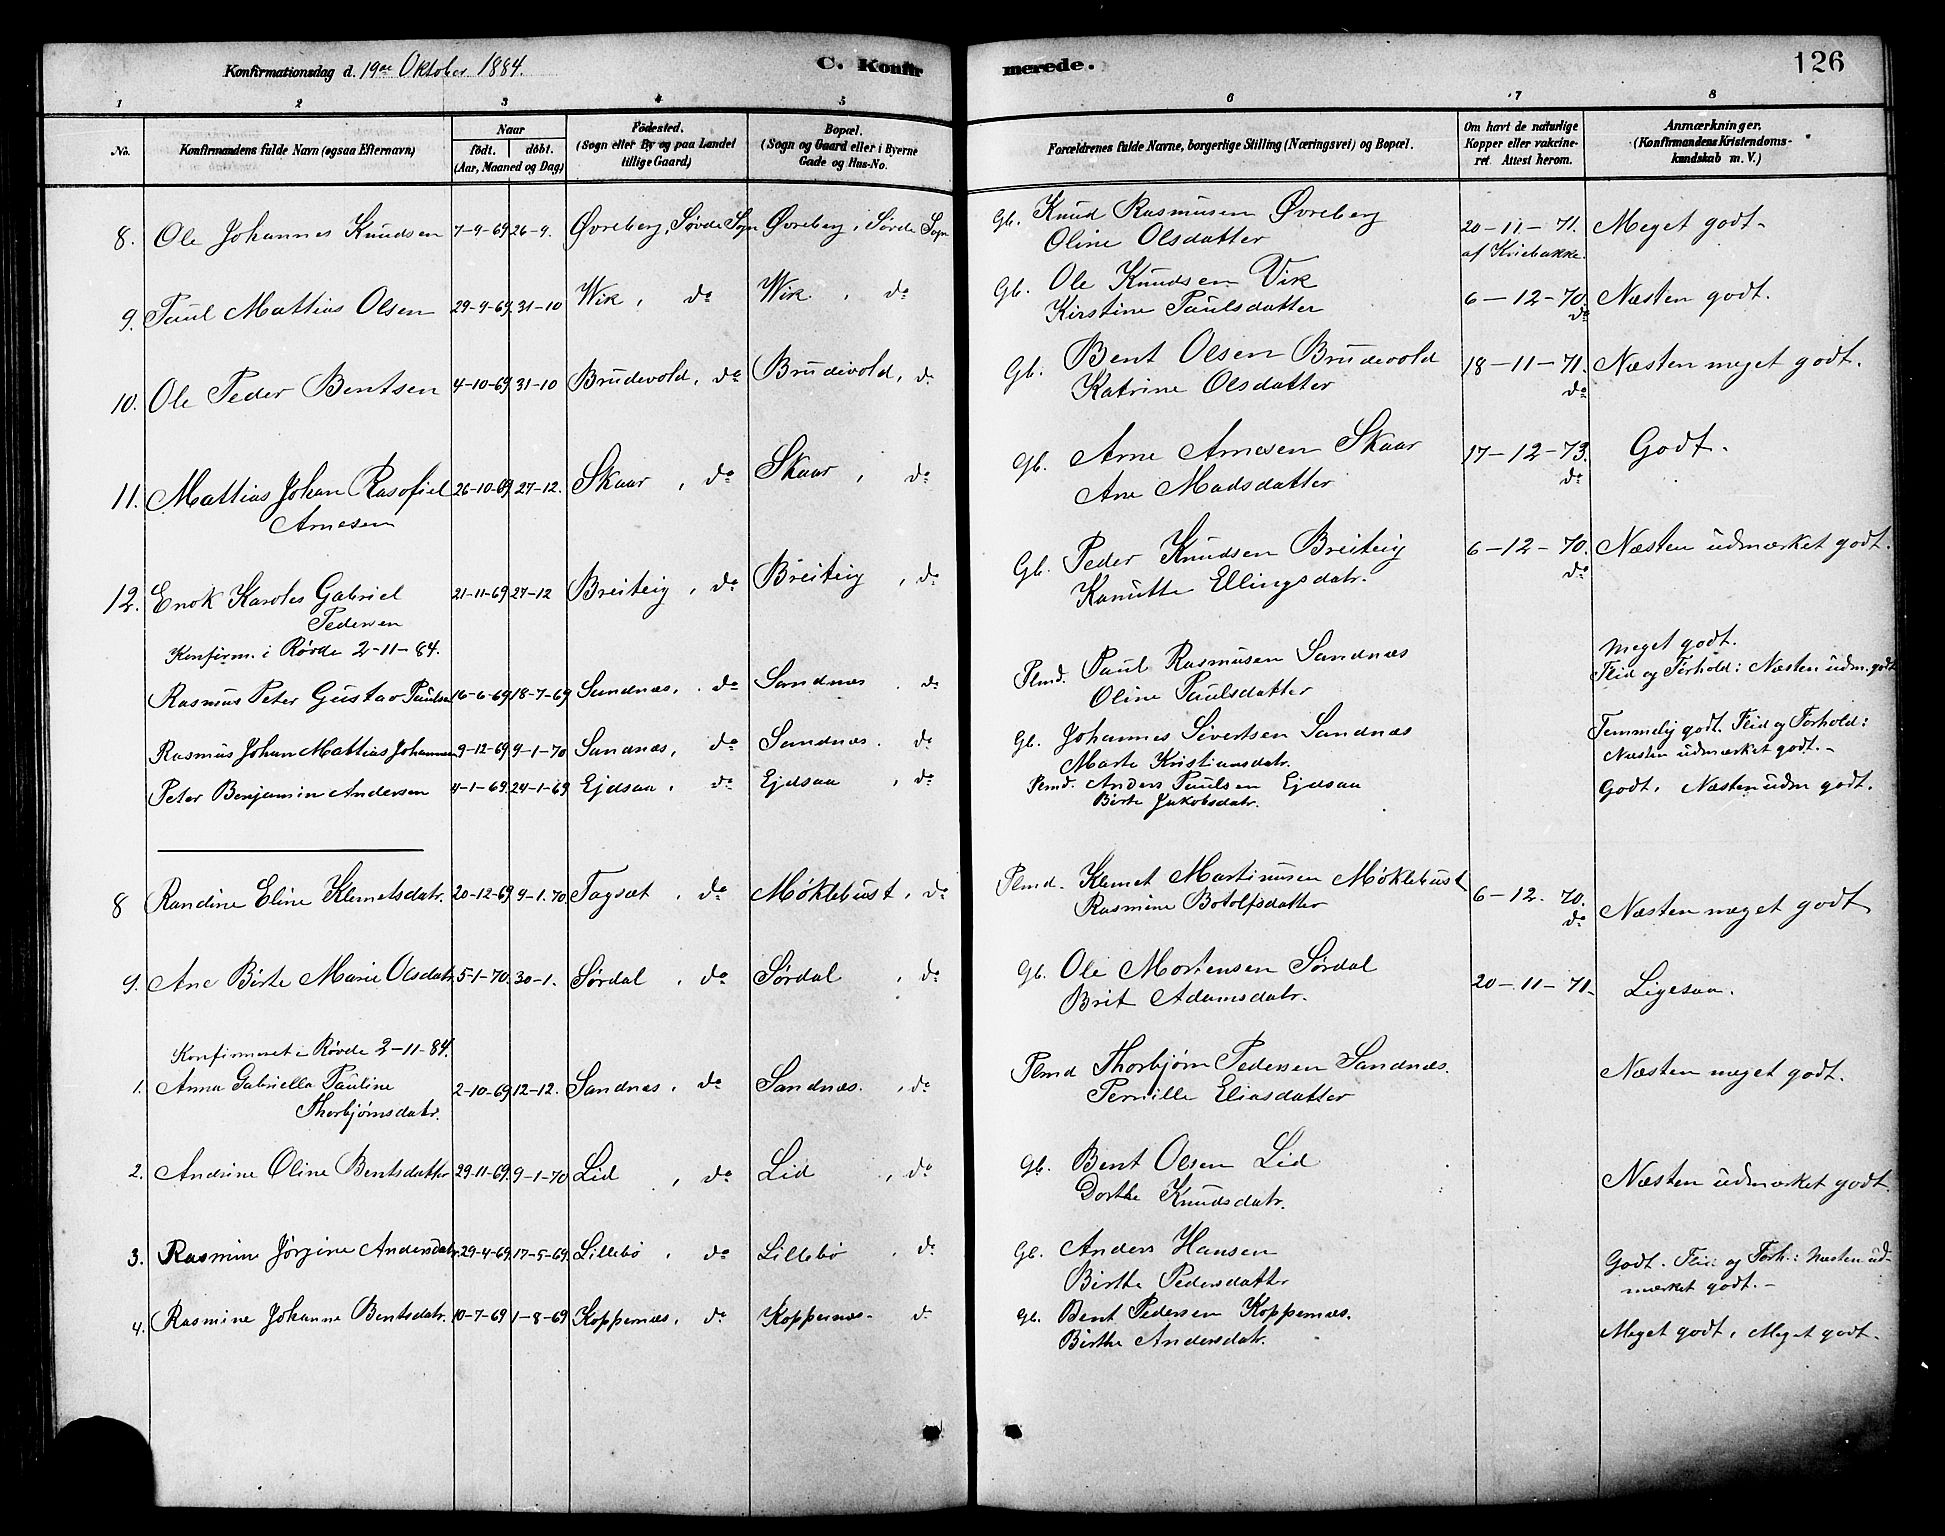 Konfirmationsdag d. 19de Oktober 1884.
C. Konfirmerede.
126
1 2 3 4 5 6 7 8
No.
Konfirmandens fulde Navn (ogsaa Efternavn)
Naar født. døbt. (Aar, Maaned og Dag)
Fødested. (Sogn eller By og paa Landet tillige Gaard)
Bopæl. (Sogn og Gaard eller i Byerne Gade og Hus-No.
Forældrenes fulde Navne, borgerlige Stilling (Næringsvei) og Bopæl.
Om havt de naturlige Kopper eller vakcineret. Attest herom.
Anmærkninger. (Konfirmandens Kristendomskundskab m. V.)
8. Ole Johannes Knudsen 7-9-69 26-9. Øvreberg, Søvde Sogn Øvreberg, Søvde Sogn Gb. Knud Rasmusen Øvreberg 20-11-71. Meget godt.
Oline Olsdatter af Knebakke.
9. Paul Mattias Olsen 29-9-69 31-10 Wik, do Wik, do Gb. Ole Knudsen Vik 6-12-70. Næsten godt.
Kirstine Paulsdatter do
10. Ole Peder Bentsen 4-10-69 31-10 Brudevold, do Brudevold, do Gb. Bent Olsen Brudevold 18-11-71. Næsten meget godt.
Katrine Olsdatter do
11. Mattias Johan Rasofiel 26-10-69 27-12. Skaar, do Skaar, do Gb. Arne Arnesen Skaar 17-12-73. Godt.
Arnesen Ane Madsdatter do
12. Enok Karoles Gabriel 21-11-69 27-12 Breiteig, do Breiteig, do Gb. Peder Knudsen Breiteig 6-12-70. Næsten udmærket godt.
Pedersen Kanutte Ellingsdatr. do
Konfirm. i Røvde 2-11-84. Meget godt.
Rasmus Peter Gustav Paulsen 16-6-69 18-7-69 Sandnæs, do Sandnæs, do Plmd. Paul Rasmusen Sandnæs Flid og Forhold: Næsten udm. godt
Oline Paulsdatter
Rasmus Johan Mattias Johannsen 9-12-69 9-1-70 Sandnæs, do Sandnæs. do Gb. Johannes Sivertsen Sandnæs Temmelig godt. Flid og Forhold:
Marte Kristiansdatr. Næsten udmærket godt.-
Peter Benjamin Andersen 4-1-69. 24-1-69 Ejdsaa, do Ejdsaa, do Plmd. Anders Paulsen Ejdsaa Godt. Næsten udm godt.
Birte Jakobsdatr.
8 Randine Eline Klemetsdatr. 20-12-69 9-1.70 Tagsæt, do Møklebust, do Plmd. Klemet Martinusen Møklebust 6-12.70. Næsten meget godt
Rasmine Botolfsdatter do
9. Ane Birte Marie Olsdatr 5-1-70. 30-1. Sørdal, do Sørdal, do Gb. Ole Mortensen Sørdal 20-11-71. Ligesaa.
Brit Adamsdatr.
Konfirmeret i Røvde 2-11-84.
1. Anna Gabriella Pauline 2-10-69 12-12. Sandnæs, do Sandnæs., do Plmd Thorbjørn Pedersen Sandnæs. Næsten meget godt.
Thorbjørnsdatr. Pernille Eliasdatter
2. Andrine Oline Bentsdatter 29-11-69. 9-1-70 Lid, do Lid, do Gb. Bent Olsen Lid Næsten udmærket godt.
Dorthe Knudsdatr.
3. Rasmine Jørgine Andersdatr. 29-4-69. 17-5-69. Lillebø, do Lillebø, do Gb. Anders Hansen Godt. Flid og Forh.: Næsten ud-
Birthe Pedersdatter mærket godt.-
4. Rasmine Johanne Bentsdatr. 10-7-69 1-8-69 Koppernæs, do Koppernæs. do Gb. Bent Pedersen Koppernæs. Meget godt, Meget godt.
Birthe Andersdatr.